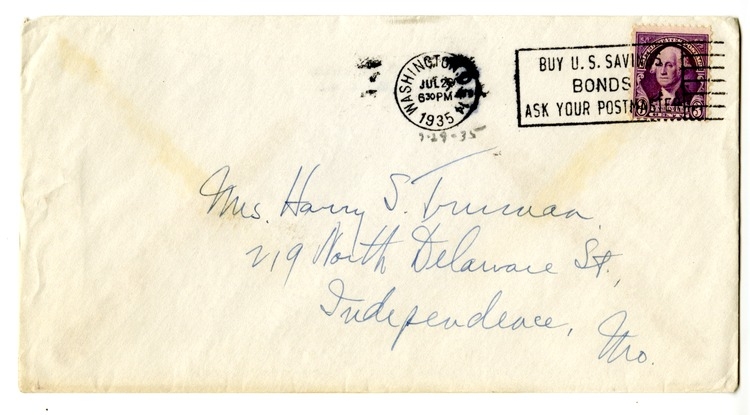 WASHINGTON, D.C.
JUL 29
6 30 PM
1935
BUY U.S. SAVINGS
BONDS
ASK YOUR POSTMASTER
3 3
7-29-35
Mrs. Harry S. Truman
219 North Delaware St.,
Independence,
Mo.